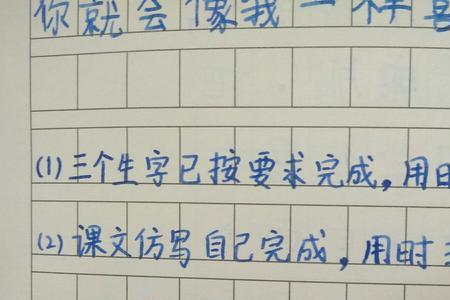 你就会像我一样喜
(1)三个生字已按要求完成,用时
(2)课文仿写自己完成,用时